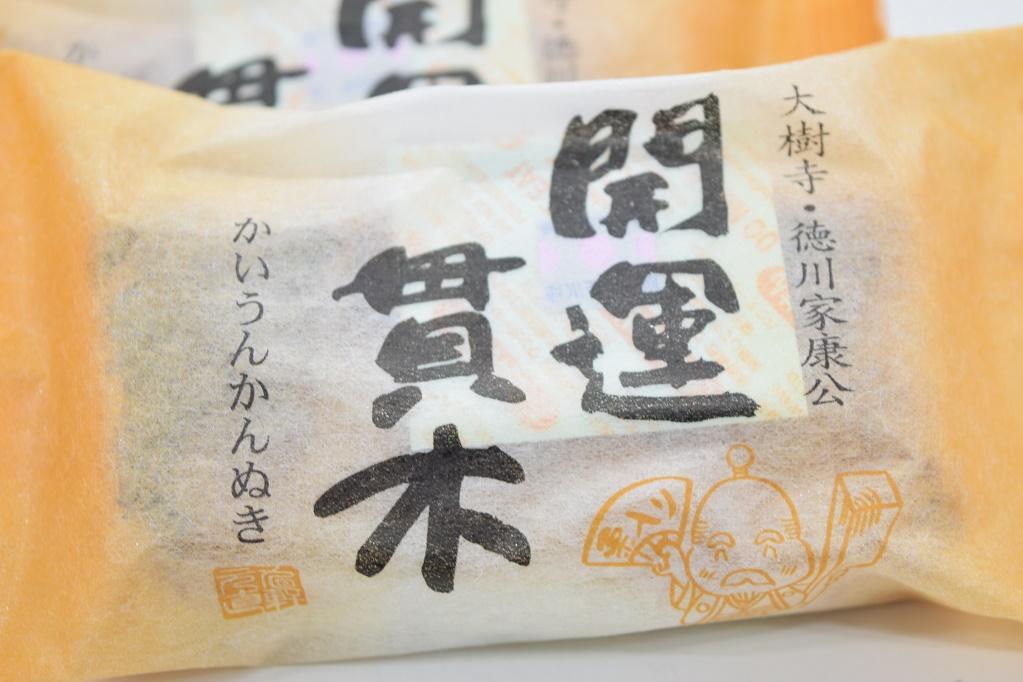 大樹寺・徳川家康公
開運
貫木
かいうんかんぬき